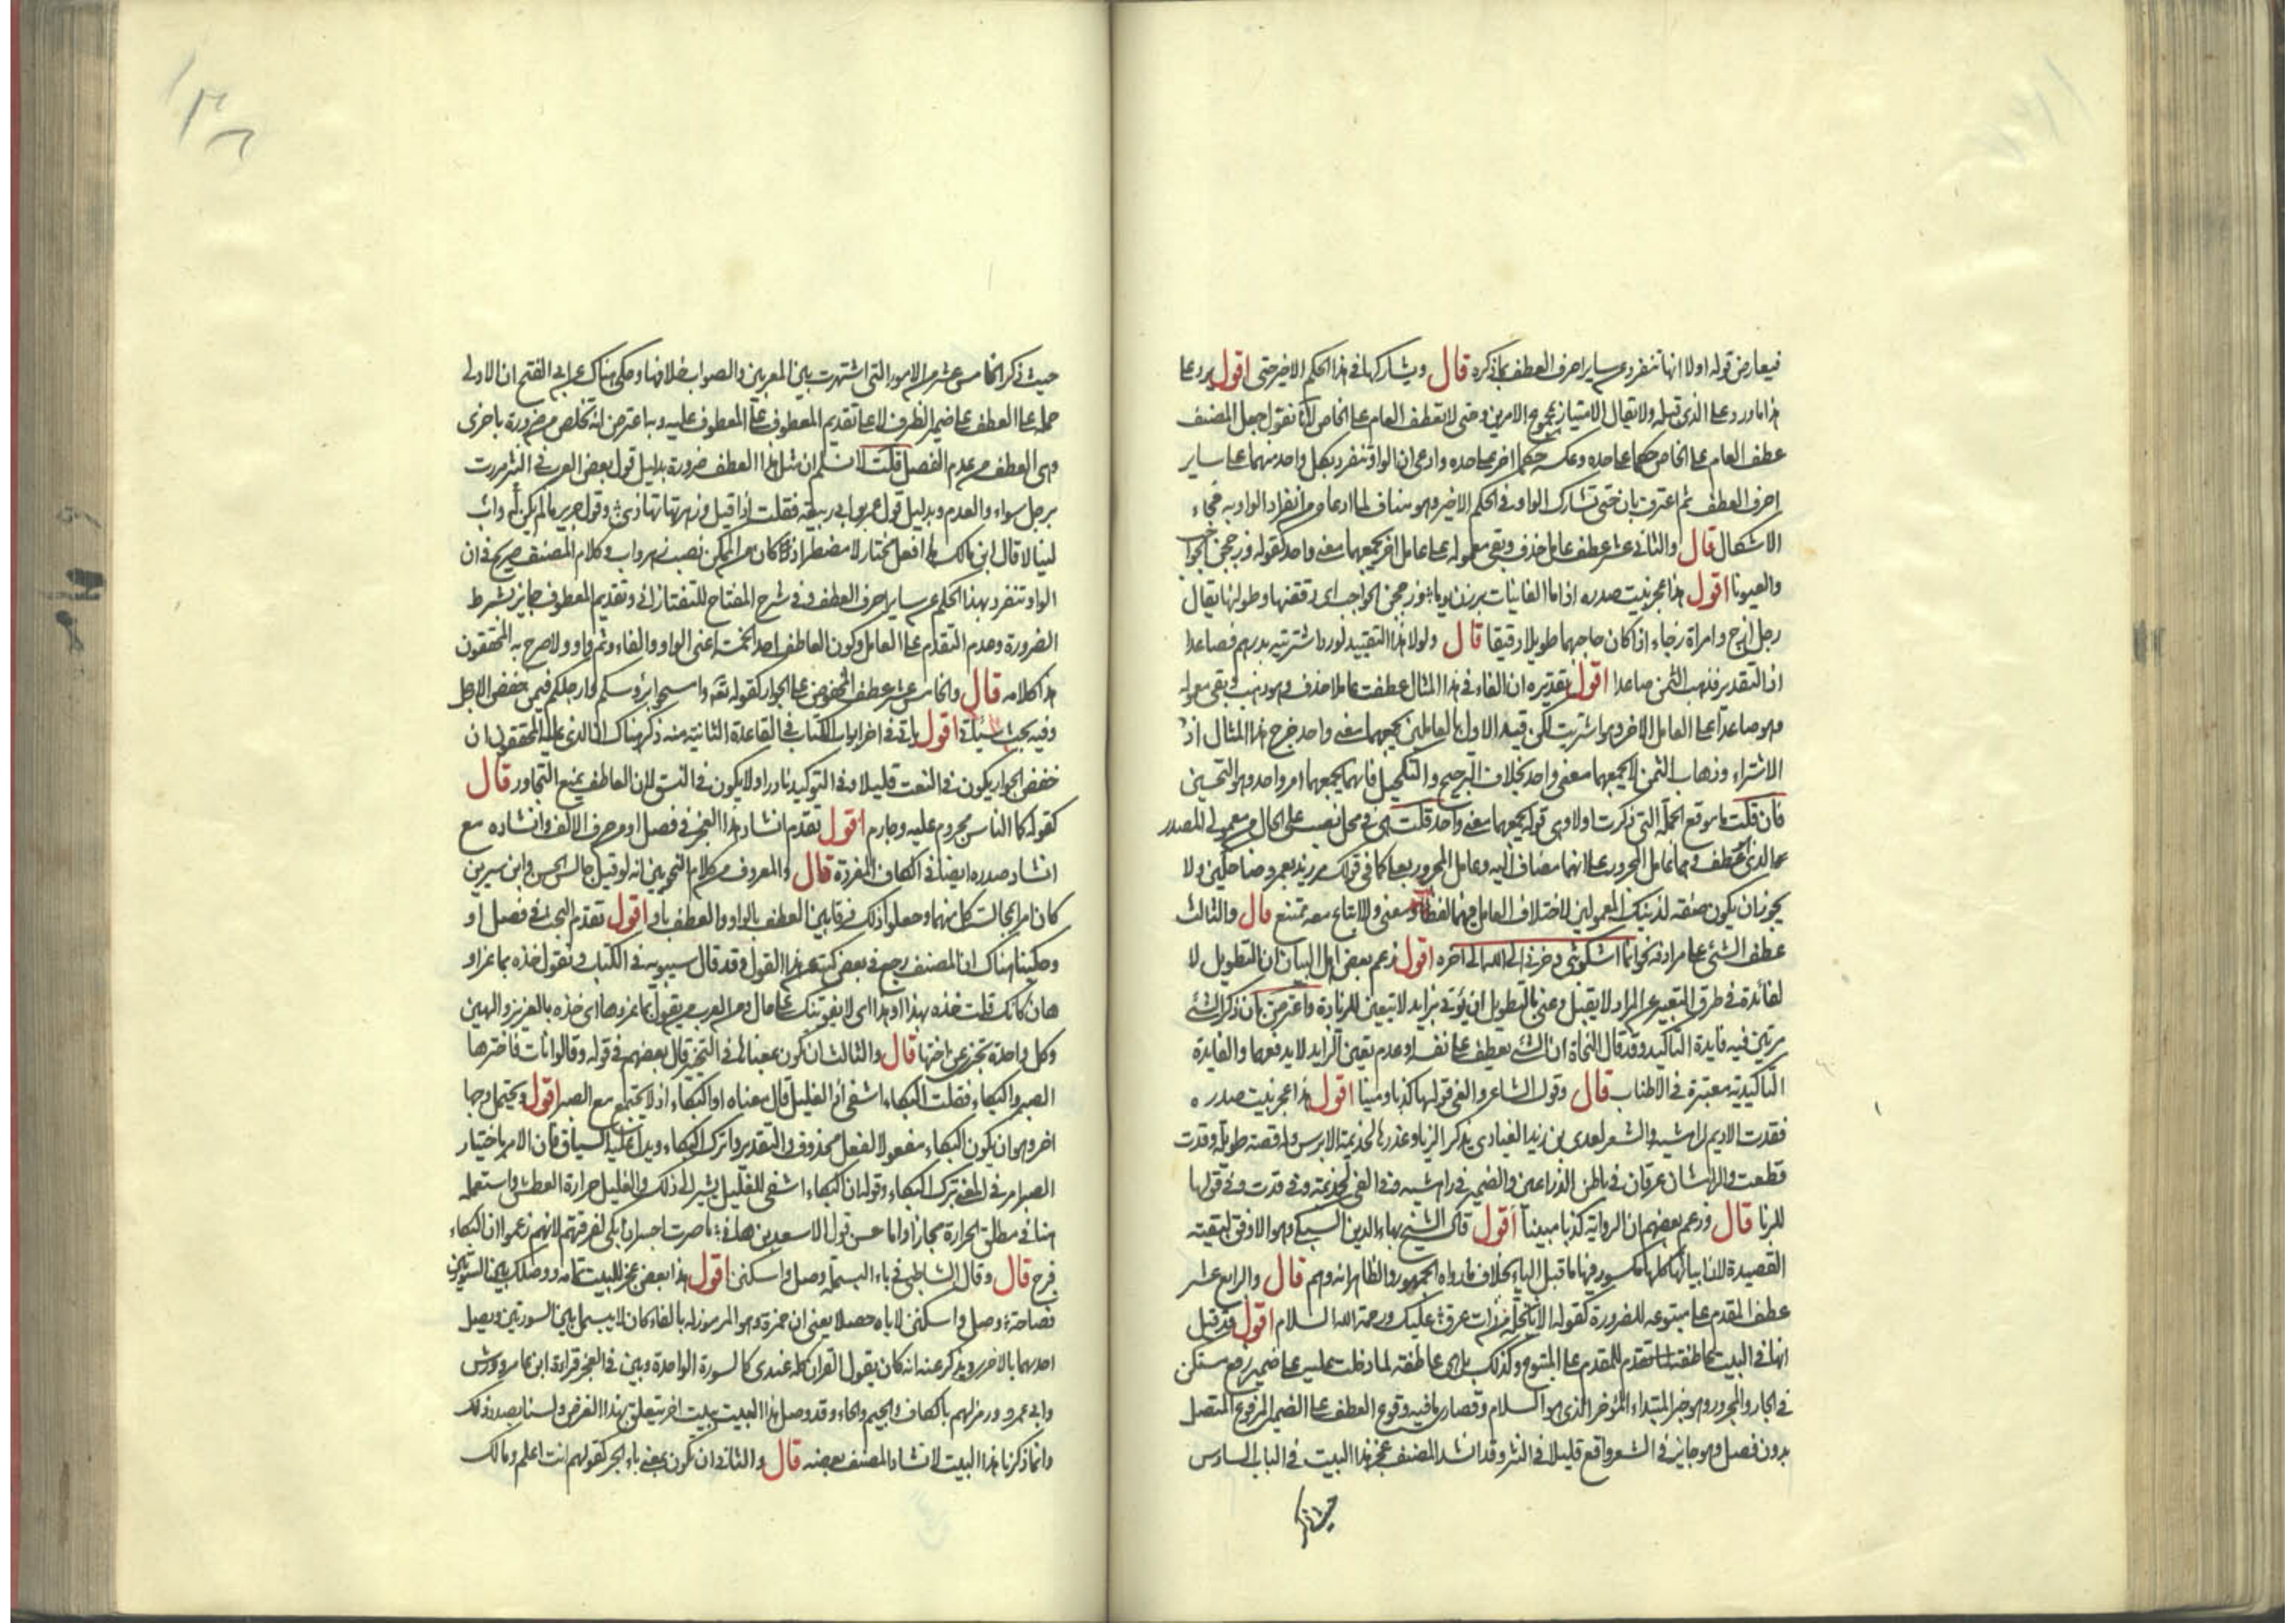 فيعارض قوله اولا انها تنفرد عن ساير احرف العطف بما ذكره قال ويشاركها في هذا الحكم الاخير حتى اقول يرد على
هذا ما ورد على الذي قبله ولا يقال الامتياز بمجموع الامرين وحتى لا يعطف العام على الخاص لانا نقول جعل المصنف
عطف العام على الخاص حكما على حده وعكسه حكما اخر على حده وادعى ان الواو تنفرد بكل واحد منهما على ساير
احرف العطف ثم اعترف بان حتى تشارك الواو في الحكم الاخير وهو مناف لما ادعاه من انفراد الواو به فجاء
الاشكال قال والثاني عشر عطف عامل حذف وبقي معموله على عامل اخر يجمعهما معنى واحد كقوله وزججن الحواجب
والعيونا اقول هذا عجز بيت صدره اذا ما الغانيات برزن يوما وزججن الحواجب اي دققنها وطولنها يقال
رجل ازج وامراة زجاء اذا كان حاجبهما طويلا دقيقا قال ولولا هذا التقييد لورد اشتريته بدرهم فصاعدا
اذ التقدير فذهب الثمن صاعدا اقول تقديره ان الفاء في هذا المثال عطفت عاملا حذف وهو ذهب وبقي معموله
وهو صاعدا على العامل الاخر وهو اشتريت لكن قيد الاول بالعاملين يجمعهما معنى واحد خرج هذا المثال اذ
الاشتراء وذهاب الثمن لا يجمعهما معنى واحد بخلاف التزجيج والتكحيل فانهما يجمعهما امر واحد وهو التحسين
فان قلت ما موقع الجملة التي ذكرت اولا وهي قوله يجمعهما معنى واحد قلت هي في محل نصب على الحال من معمولي المصدر
يجوز ان يكون صفة لذينك المعمولين لاختلاف العامل فيهما لفظا ومعنى والاتباع معه ممتنع قال والثالث
عطف الشئ على مرادفه نحو انما اشكو بثي وحزني الى الله الى اخره اقول زعم بعض اهل البيان ان التطويل لا
لفائدة في طرق التعبير عن المراد لا يقبل وعنى بالتطويل ان يؤتى بزايد لا يتعين للزيادة واعترض بان ذكر الشئ
مرتين فيه فايدة التاكيد وقد قال النحاة ان الشئ يعطف على نفسه وعدم تعين الزايد لا يدفعها والفايدة
التاكيدية معتبرة في الاطناب قال وقول الشاعر والفى قولها كذبا ومينا اقول هذا عجز بيت صدره
فقدت الاديم لراهشيه والشعر لعدي بن زيد العبادي يذكر الزبا وغدرها لجذيمة الابرس وله قصة طويلة وقدت
قطعت والراهشان عرقان في باطن الذراعين والضمير في راهشيه وفي الفى لجذيمة وفي قدت وفي قولها
للزبا قال وزعم بعضهم ان الرواية كذبا مبينا اقول قال الشيخ بهاء الدين السبكي وهو الاوفق لبقية
القصيدة لان ابياتها كلها مكسور فيها ما قبل الياء بخلاف ما رواه الجمهور والظاهر انه وهم قال والرابع عشر
عطف المقدم على متبوعه للضرورة كقوله الا يا نخلة من ذات عرق عليك ورحمة الله السلام اقول قد قيل
في الجار والمجرور وهو خبر المبتداء المؤخر الذي هو السلام وقصارى ما فيه وقوع العطف على الضمير المرفوع المتصل
بدون فصل وهو جايز في الشعر واقع قليلا في النثر وقد انشد المصنف عجز هذا البيت في الباب السادس
حيث ذكر
حيث ذكر الخامس عشر من الامور التي اشتهرت بين المعربين والصواب خلافها وحكى هناك عن ابي الفتح ان الاولى
حمله على العطف على ضمير الظرف لا على تقديم المعطوف على المعطوف عليه وبه اعترض انه تخلص من ضرورة باخرى
وهي العطف مع عدم الفصل قلت لا نسلم ان مثل هذا العطف ضرورة بدليل قول بعض العرب في النثر مررت
برجل سواء والعدم وبدليل قول عمر بن ابي ربيعة فقلت اذا قبلت وزهر تهادى وقول جرير ما لم يكن واب
لينالا قال ابن مالك في افعل مختار لا مضطر اذ كان من الممكن نصب زهر واب وكلام المصنف صريح في ان
الواو تنفرد بهذا الحكم عن ساير احرف العطف وفي شرح المفتاح للتفتازاني وتقديم المعطوف جايز بشرط
الضرورة وعدم التقدم على العامل وكون العاطف احد الخمسة اعني الواو والفاء وثم واو ولا صرح به المحققون
هذا كلامه قال والخامس عشر عطف المخفوض على الجوار كقوله تعالى وامسحوا برؤسكم وارجلكم فيمن خفض الارجل
وفيه بحث سياتي اقول ياتي في اخر ابواب الكتاب في القاعدة الثانية منه ذكر هناك ان الذي عليه المحققون ان
خفض الجوار يكون في النعت قليلا وفي التوكيد نادرا ولا يكون في النسق لان العاطف يمنع التجاور قال
كقوله كما الناس مجروم عليه وجارم اقول تقدم انشاد هذا العجز في فصل او من حرف الالف وانشاده مع
انشاد صدره ايضا في الكاف المفردة قال والمعروف من كلام النحويين انه لو قيل جالس الحسن وابن سيرين
كان امرا بمجالسة كل منهما وجعلوا ذلك فرقا بين العطف بالواو والعطف باو اقول تقدم البحث في فصل او
وحكينا هناك ان المصنف رجع في بعض كتبه عن هذا القول وقد قال سيبويه في الكتاب وتقول خذه بما عز او
هان كانك قلت خذه بهذا او بهذا اي لا يفوتنك على حال ومن العرب من يقول بما عز وهان اي خذه بالعزيز والهين
وكل واحدة تجزئ عن اختها قال والثالث ان تكون بمعناها في التخيير قال بعضهم في قوله وقالوا نات فاختر لها
الصبر والبكاء فقلت البكاء اشفى اذا لغليلي قال معناه او البكاء اذ لا يجتمع مع الصبر اقول ويحتمل وجها
اخر وهو ان يكون البكاء مفعولا لفعل محذوف والتقدير واترك البكاء ويدل عليه السياق فان الامر باختيار
الصبر امر في المعنى بترك البكاء وقوله ان البكاء اشفى للغليل يشير الى ذلك والغليل حرارة العطش واستعمله
هنا في مطلق الحرارة مجازا
فرح قال وقال الشاطبي في باء البسملة وصل واسكتن اقول هذا بعض عجز للبيت تمامه ووصلك بين السورتين
فصاحة وصل واسكتن لاياه حصلا يعني ان حمزة وهو المرموز له بالفاء كان لا يبسمل بين السورتين ويصل
احدهما بالاخرى ويذكر عنه انه كان يقول القران كله عندي كالسورة الواحدة وبين في العجز قراءة ابن عامر وورش
وابي عمرو ورمز لهم بالكاف والجيم والحاء وقد وصل هذا البيت ببيت اخر يتعلق بهذا الغرض ولسنا بصدد ذلك
وانما ذكرنا هذا البيت لانشاد المصنف بعضه قال والثاني ان تكون بمعنى باء الجر كقولهم انت اعلم ومالك